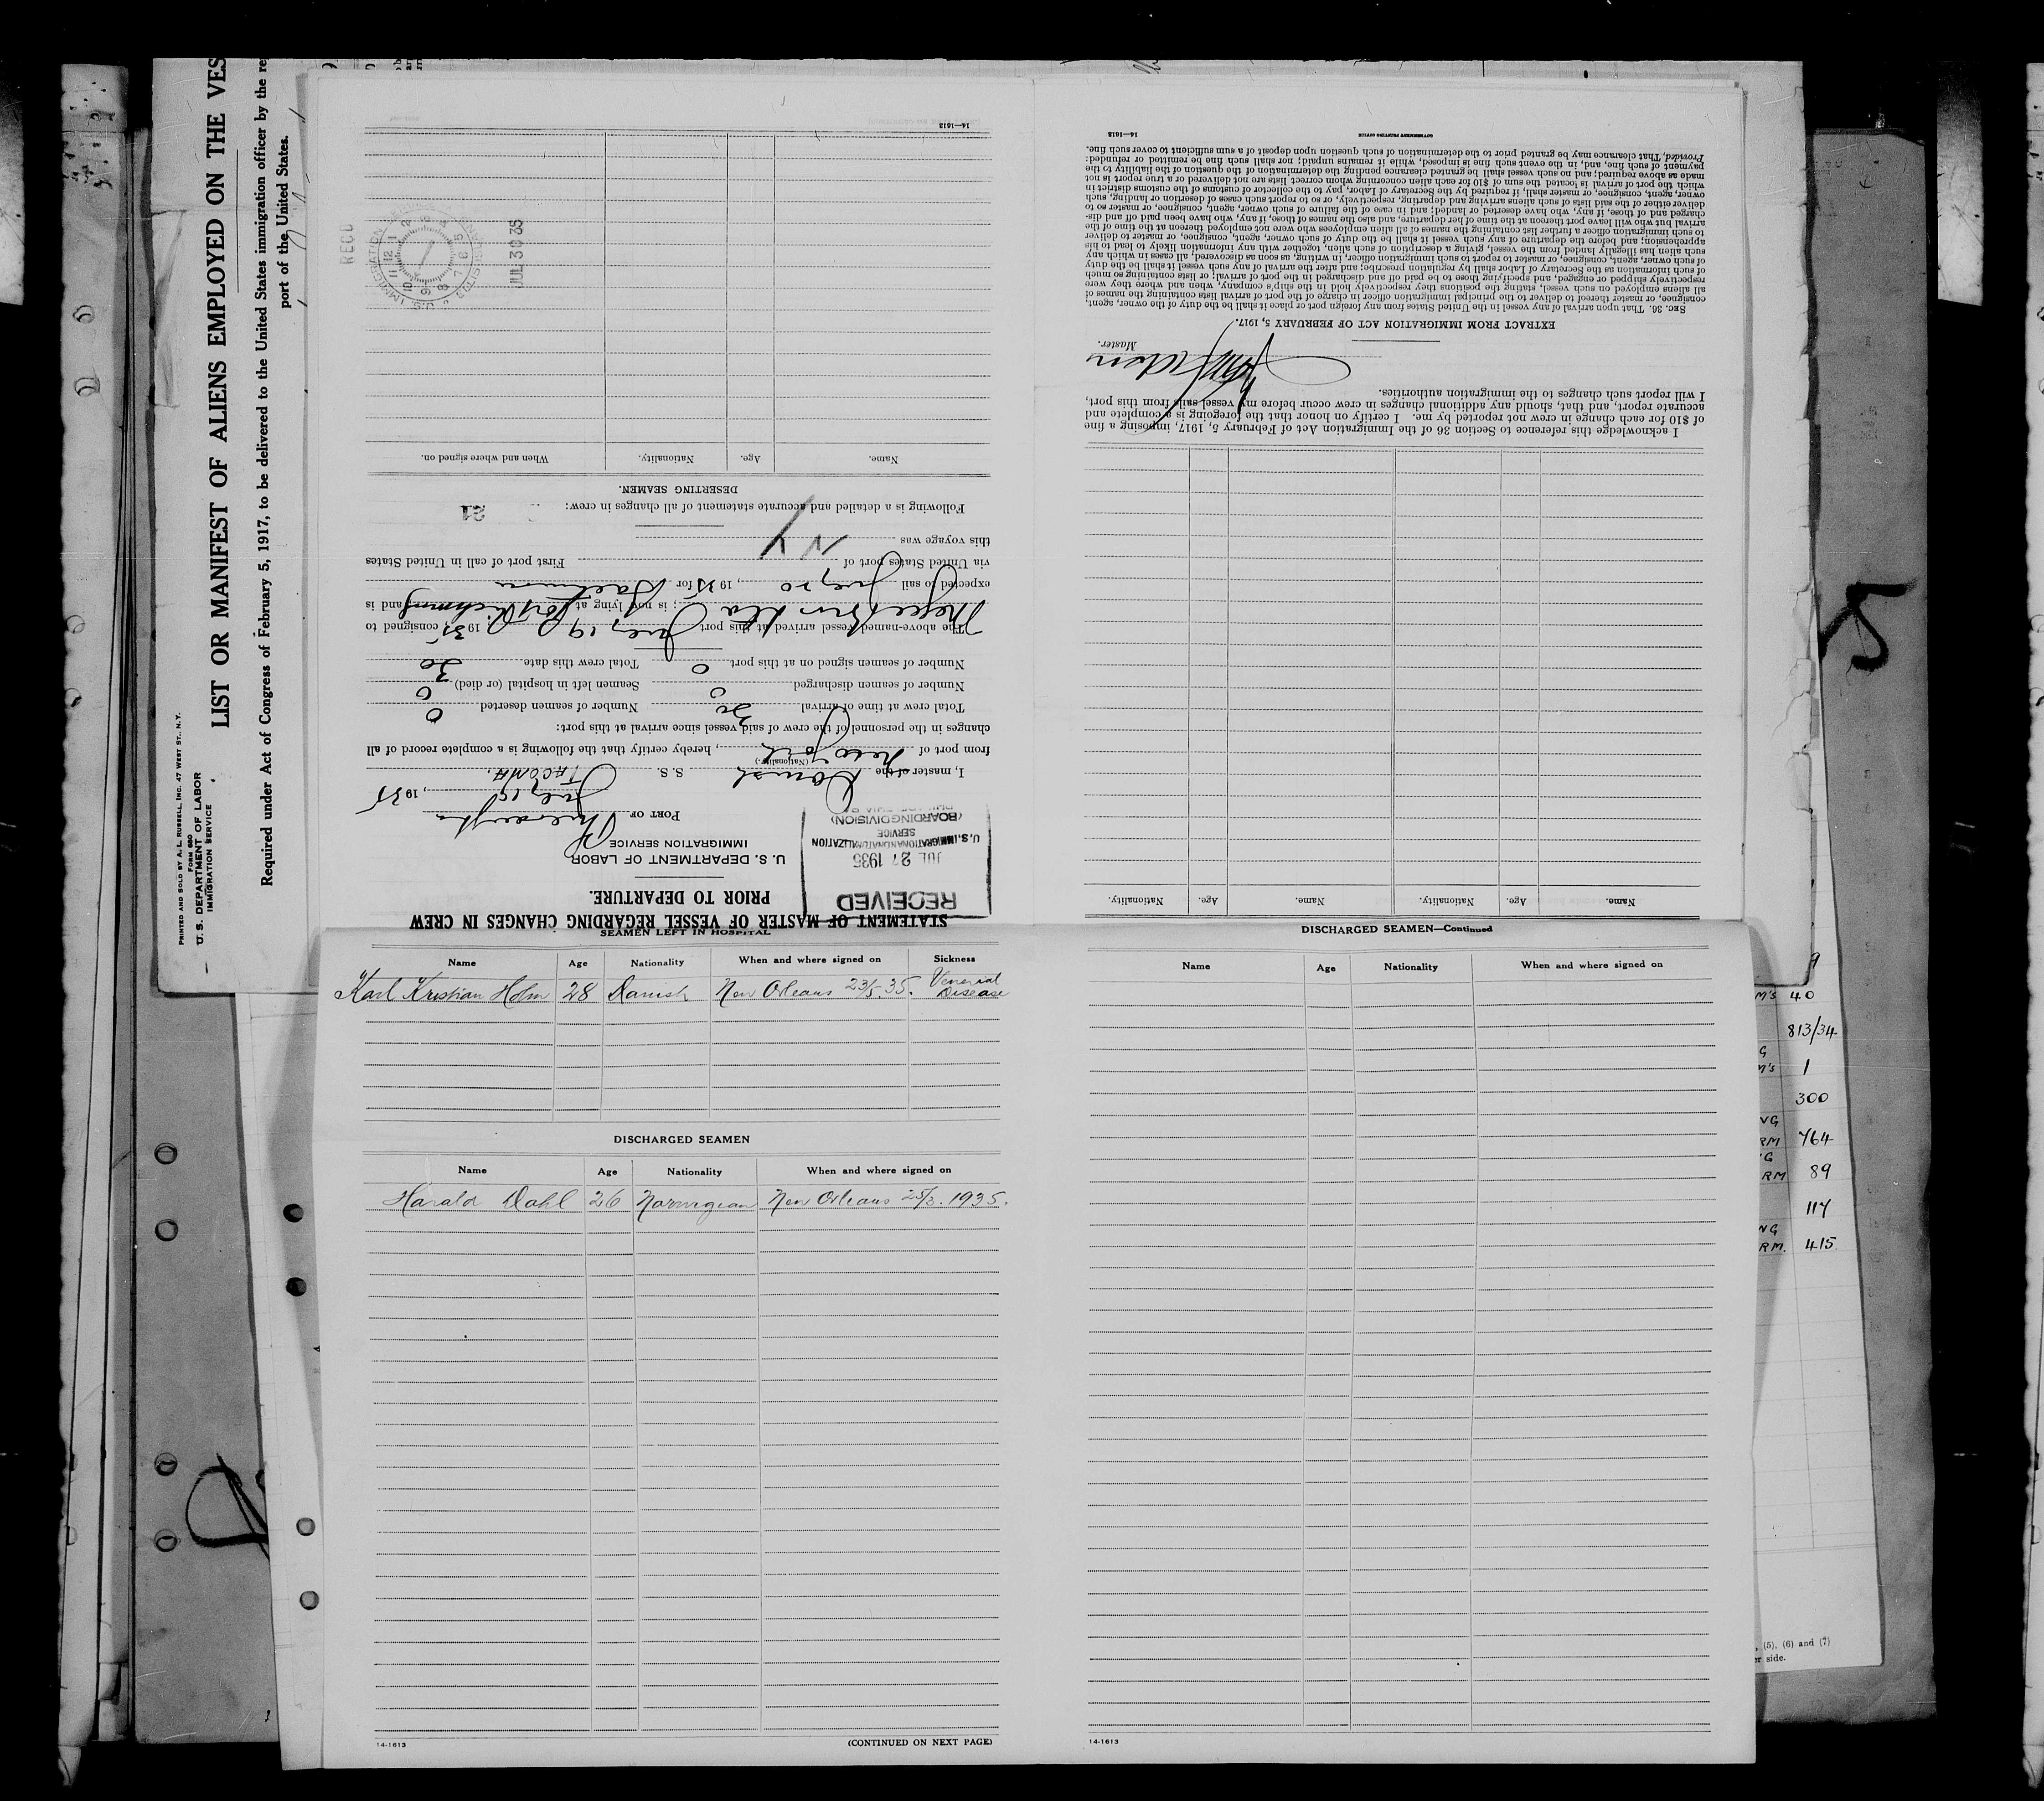 PRINTED AND SOLD BY A. L. RUSSELL, INC. 47 WEST ST., N.Y.
FORM 680
U. S. DEPARTMENT OF LABOR
IMMIGRATION SERVICE
LIST OR MANIFEST OF ALIENS EMPLOYED ON THE VES
Required under Act of Congress of February 5, 1917, to be delivered to the United States immigration officer by the re
port of the United States.
STATEMENT OF MASTER OF VESSEL REGARDING CHANGES IN CREW
PRIOR TO DEPARTURE.
RECEIVED
JUL 27 1935
U.S. IMMIGRATION AND NATURALIZATION
SERVICE
(BOARDING DIVISION)
U. S. DEPARTMENT OF LABOR
IMMIGRATION SERVICE
PORT OF Philadelphia
July 19, 1935
I, master of the Danish S. S. TACOMA
(Nationality.)
from port of New York, hereby certify that the following is a complete record of all
changes in the personnel of the crew of said vessel since arrival at this port:
Total crew at time of arrival 30 Number of seamen deserted 0
Number of seamen discharged 0 Seamen left in hospital (or died) 0
Number of seamen signed on at this port 0 Total crew this date 30
The above-named vessel arrived at this port July 19, 1935, consigned to
; is now lying at Port Richmond and is
expected to sail July 20, 1935 for Baltimore
via United States port of First port of call in United States
this voyage was N Y
Following is a detailed and accurate statement of all changes in crew: 21
DESERTING SEAMEN.
Name. Age. Nationality. When and where signed on.
RECD
JUL 31 9 35
U.S. IMMIGRATION
14—1613
Name. Age. Nationality. Name. Age. Nationality.
I acknowledge this reference to Section 36 of the Immigration Act of February 5, 1917, imposing a fine
of $10 for each change in crew not reported by me. I certify on honor that the foregoing is a complete and
accurate report, and that, should any additional changes in crew occur before my vessel sails from this port,
I will report such changes to the immigration authorities.
Master.
EXTRACT FROM IMMIGRATION ACT OF FEBRUARY 5, 1917.
SEC. 36. That upon arrival of any vessel in the United States from any foreign port or place it shall be the duty of the owner, agent,
consignee, or master thereof to deliver to the principal immigration officer in charge of the port of arrival lists containing the names of
all aliens employed on such vessel, stating the positions they respectively hold in the ship's company, when and where they were
respectively shipped or engaged, and specifying those to be paid off and discharged in the port of arrival; or lists containing so much
of such information as the Secretary of Labor shall by regulation prescribe; and after the arrival of any such vessel it shall be the duty
of such owner, agent, consignee, or master to report to such immigration officer, in writing, as soon as discovered, all cases in which any
such alien has illegally landed from the vessel, giving a description of such alien, together with any information likely to lead to his
apprehension; and before the departure of any such vessel it shall be the duty of such owner, agent, consignee, or master to deliver
to such immigration officer a further list containing the names of all alien employees who were not employed thereon at the time of the
arrival but who will leave port thereon at the time of her departure, and also the names of those, if any, who have been paid off and dis-
charged and of those, if any, who have deserted or landed; and in case of the failure of such owner, agent, consignee, or master so to
deliver either of the said lists of such aliens arriving and departing, respectively, or so to report such cases of desertion or landing, such
owner, agent, consignee, or master shall, if required by the Secretary of Labor, pay to the collector of customs of the customs district in
which the port of arrival is located the sum of $10 for each alien concerning whom correct lists are not delivered or a true report is not
made as above required; and no such vessel shall be granted clearance pending the determination of the question of the liability to the
payment of such fine, and, in the event such fine is imposed, while it remains unpaid; nor shall such fine be remitted or refunded:
Provided, That clearance may be granted prior to the determination of such question upon deposit of a sum sufficient to cover such fine.
GOVERNMENT PRINTING OFFICE 14—1613
SEAMEN LEFT IN HOSPITAL
Name Age Nationality When and where signed on Sickness
Karl Kristian Holm 28 Danish New Orleans 23/5.35. Venerial Disease
DISCHARGED SEAMEN
Name Age Nationality When and where signed on
Harald Dahl 26 Norwegian New Orleans 25/3. 1935.
14-1613 (CONTINUED ON NEXT PAGE)
DISCHARGED SEAMEN—Continued
Name Age Nationality When and where signed on
14-1613
M's 40
813/34
G
M's 1
300
NG
RM 764
G
RM 89
117
NG
RM. 415
, (5), (6) and (7)
er side.